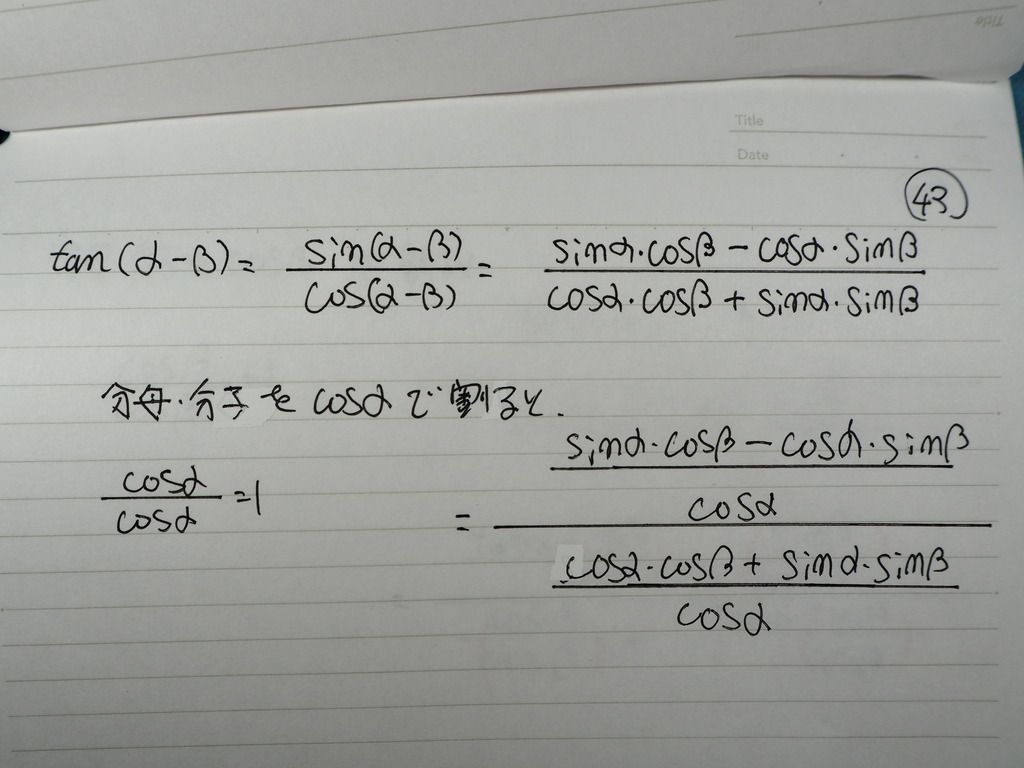 Title
Title
Date
43
tan(α-β) = sin(α-β)/cos(α-β) = (sinα·cosβ - cosα·sinβ)/(cosα·cosβ + sinα·sinβ)
分母·分子をcosαで割ると.
cosα/cosα = 1
= ((sinα·cosβ - cosα·sinβ)/cosα)/((cosα·cosβ + sinα·sinβ)/cosα)